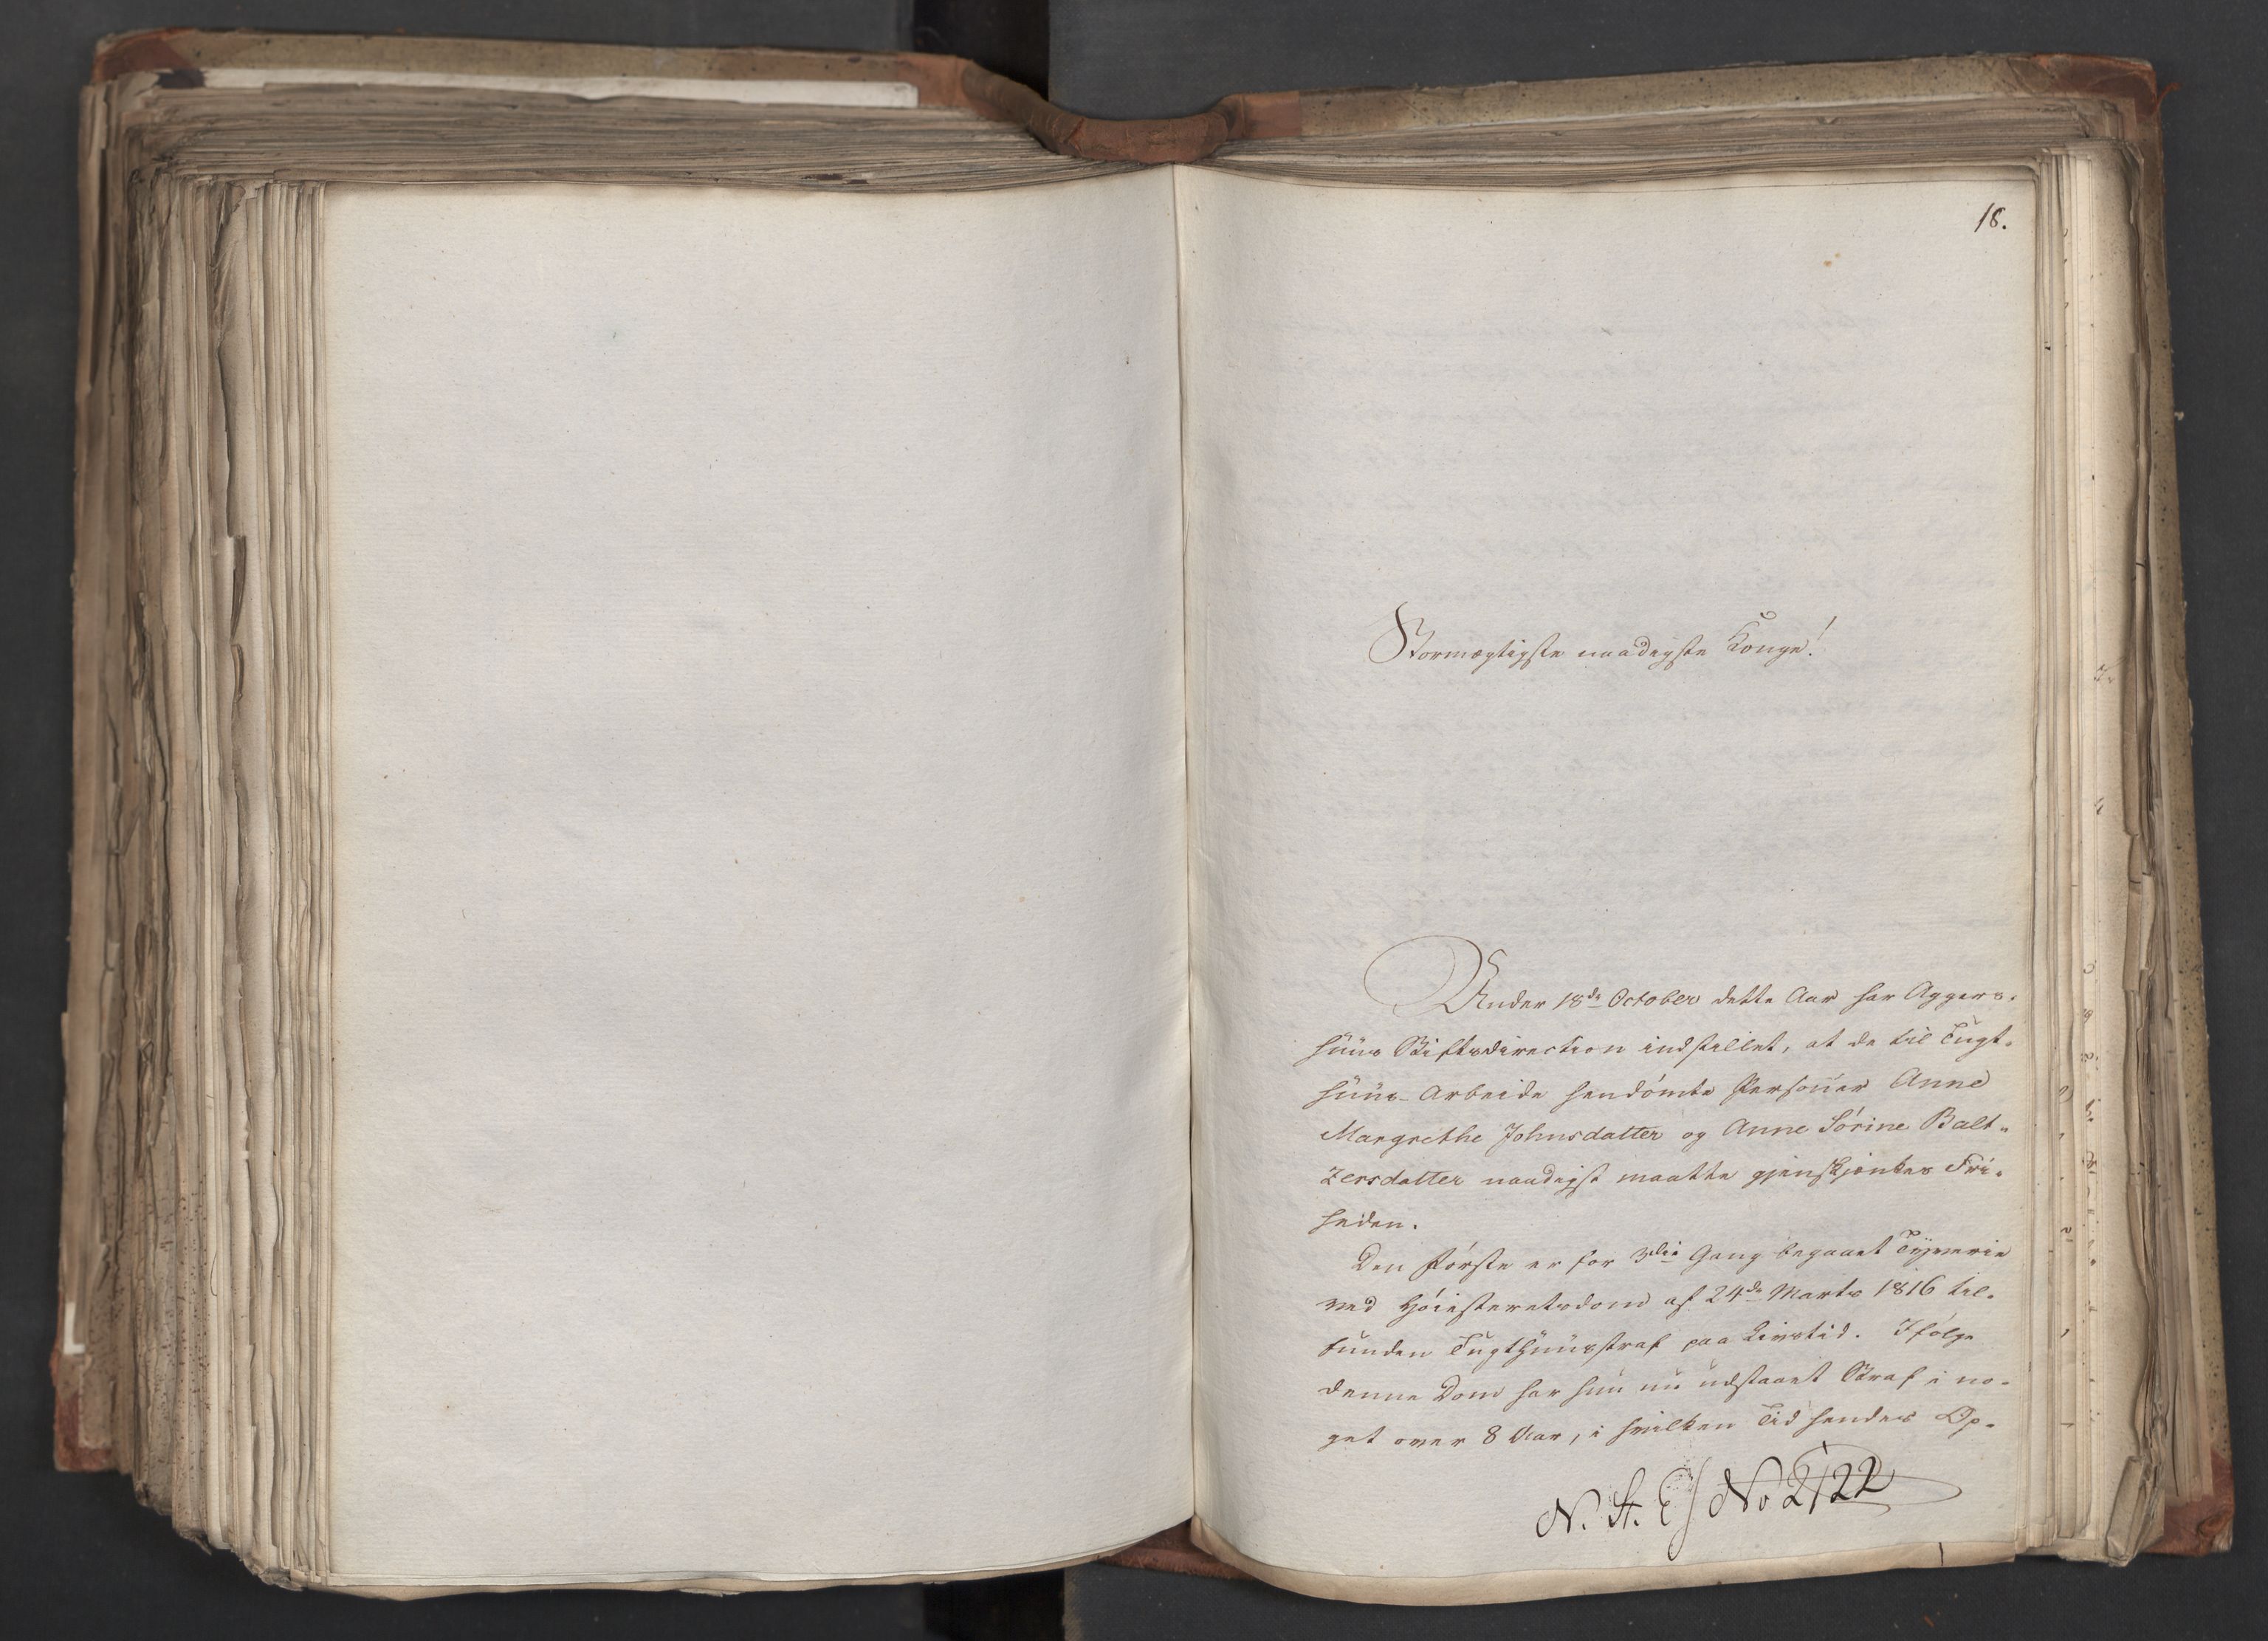 18.
Stormægtigste naadigste Konge!
Under 18de October dette Aar har Aggers-
huus Stiftsdirection indstillet, at de til Tugt-
huus-Arbeide hendømte Personer Anne
Margrethe Johnsdatter og Anne Sørine Balt-
zersdatter naadigst maatte gjenskjænkes Fri-
heden.
Den første er for 3die Gang begaaet Tyverie
ved Høiesteretsdom af 24de Marts 1816 til-
funden Tugthuusstraf paa Livstid. Ifølge
denne Dom har hun nu udstaaet Straf i no-
get over 8 Aar, i hvilken Tid hendes Op-
N. St. E No 2122